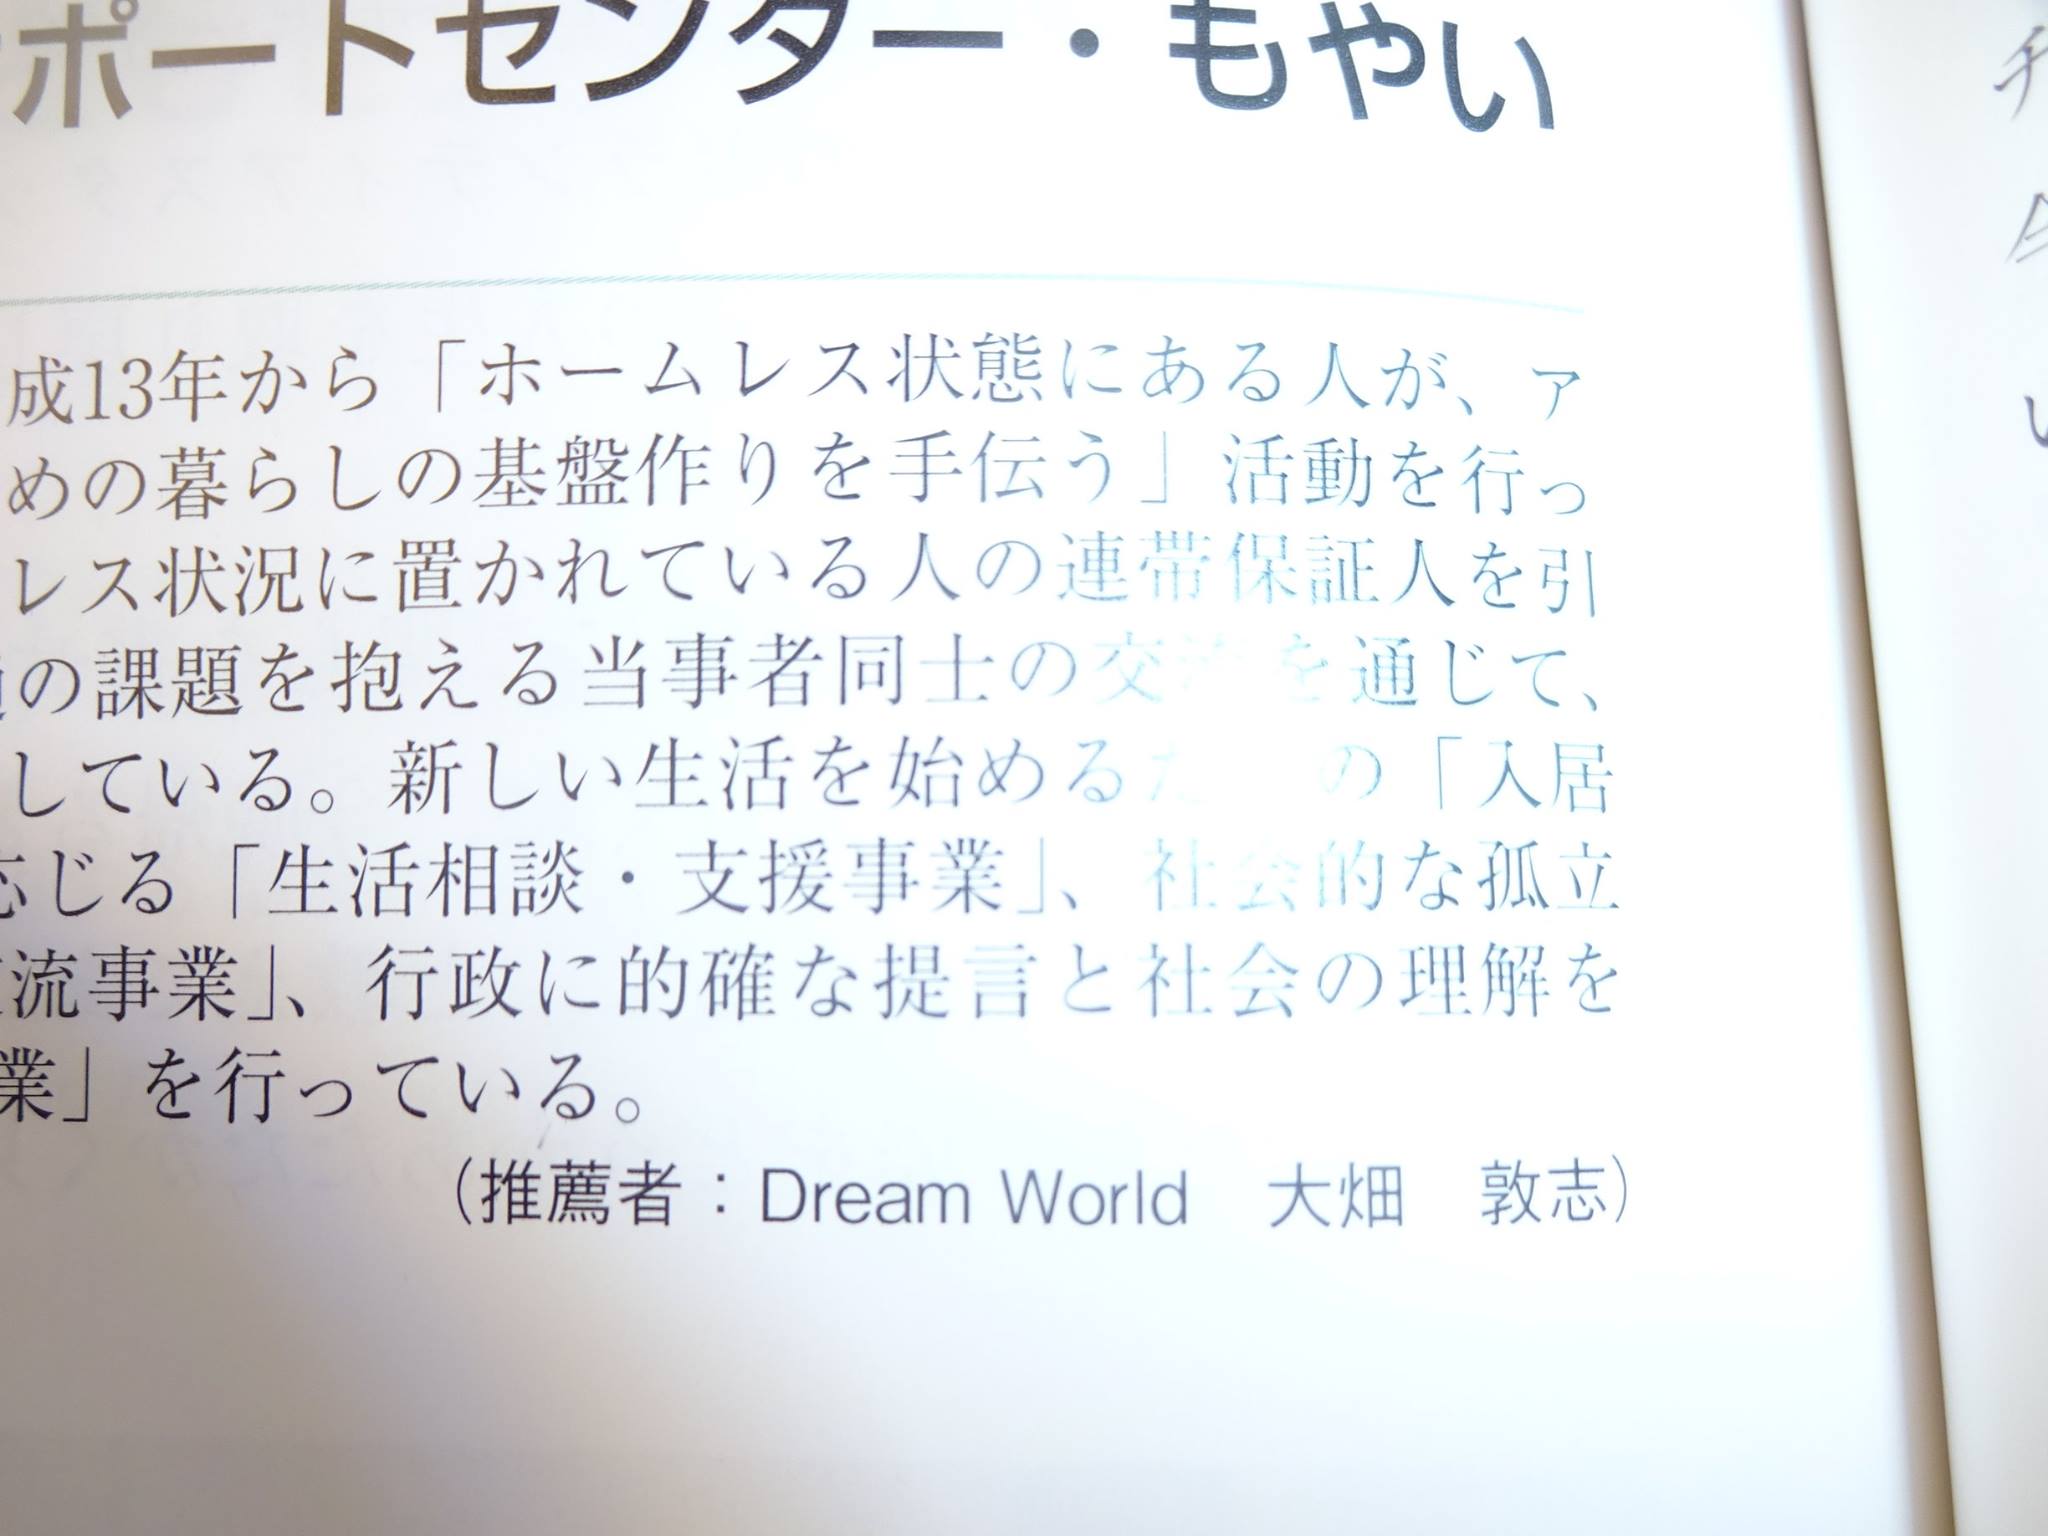 ポートセンター・もやい
成13年から「ホームレス状態にある人が、ア
めの暮らしの基盤作りを手伝う」活動を行っ
レス状況に置かれている人の連帯保証人を引
の課題を抱える当事者同士の交流を通じて、
している。新しい生活を始める の「入居
応じる「生活相談・支援事業」、社会的な孤立
流事業」、行政に的確な提言と社会の理解を
業」を行っている。
（推薦者：Dream World　大畑　敦志）
い